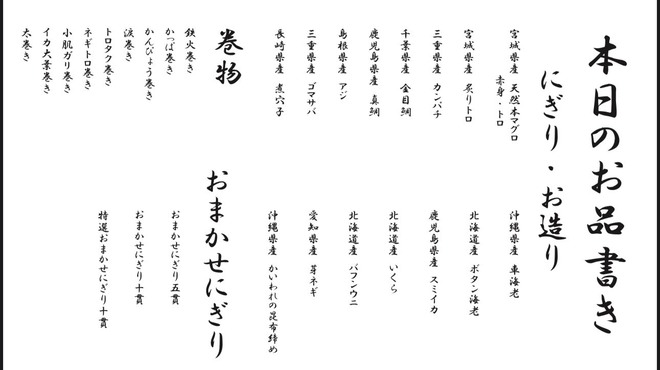 本日のお品書き
にぎり・お造り
宮城県産 天然本マグロ
赤身・トロ
宮城県産 炙りトロ
三重県産 カンパチ
千葉県産 金目鯛
鹿児島県産 真鯛
島根県産 アジ
三重県産 ゴマサバ
長崎県産 煮穴子
沖縄県産 車海老
北海道産 ボタン海老
鹿児島県産 スミイカ
北海道産 いくら
北海道産 バフンウニ
愛知県産 芽ネギ
沖縄県産 かいわれの昆布締め
巻物
鉄火巻き
かっぱ巻き
かんぴょう巻き
涙巻き
トロタク巻き
ネギトロ巻き
小肌ガリ巻き
イカ大葉巻き
太巻き
おまかせにぎり
おまかせにぎり五貫
おまかせにぎり十貫
特選おまかせにぎり十貫